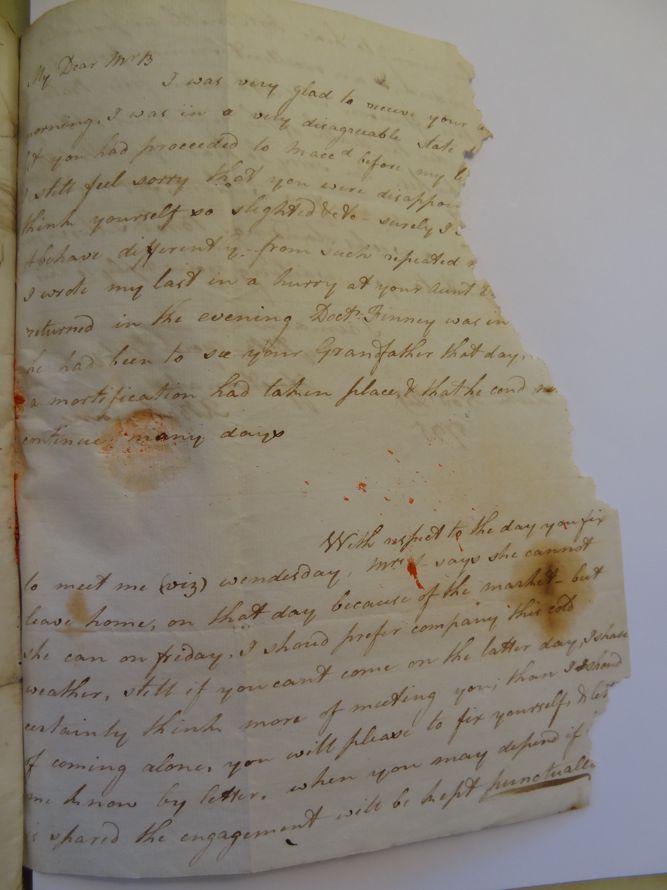 My Dear Mr B
I was very glad to receive your
morning. I was in a very disagreeable state
if you had proceeded to Macc'd before my
I still feel sorry that you were disappoi
think yourself so slighted &c to - surely I
behave differently - from such repeated
I wrote my last in a hurry at your Aunt
returned in the evening Doctr. Finney was in
he had been to see your Grandfather that day,
a mortification had taken place, & that he coud
continue many days
With respect to the day you fix
to meet me (viz) wendesday, Mrs says she cannot
leave home, on that day because of the market - but
she can on friday. I shoud prefer company this cold
weather, still if you cant come on the latter day, I shall
certainly think more of meeting you, than I shoud
of coming alone, you will please to fix yourself, & let
me know by letter. when you may depend if
is spared the engagement will be kept punctually